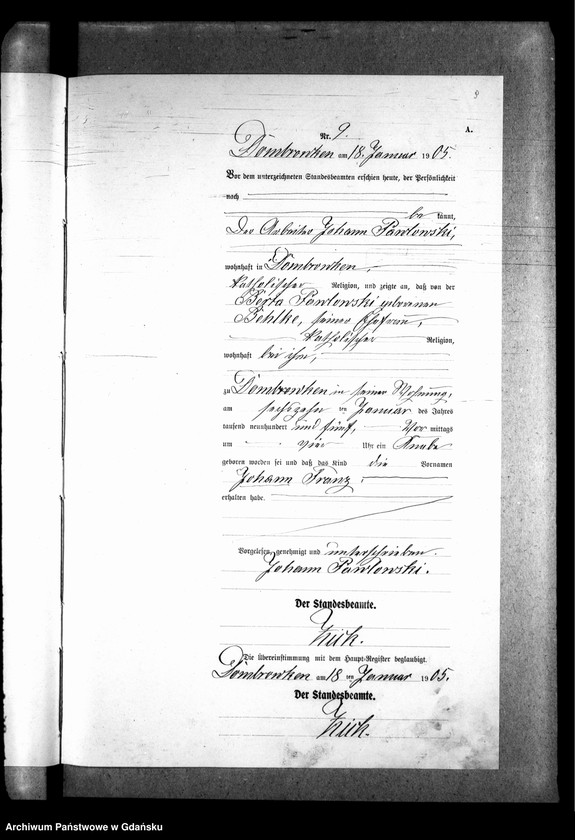 9
A.
Nr. 9.
Dombrowken am 18. Januar 1905.
Vor dem unterzeichneten Standesbeamten erschien heute, der Persönlichkeit
nach
be kannt,
Der Arbeiter Johann Pawlowski,
wohnhaft in Dombrowken,
katholischer Religion, und zeigte an, daß von der
Berta Pawlowski geborenen
Behlke, seiner Ehefrau,
katholischer Religion,
wohnhaft bei ihm,
zu Dombrowken in seiner Wohnung,
am sechszehn ten Januar des Jahres
tausend neunhundert und fünf, Vor mittags
um vier Uhr ein Knabe
geboren worden sei und daß das Kind die Vornamen
Johann Franz
erhalten habe.
Vorgelesen, genehmigt und unterschrieben.
Johann Pawlowski.
Der Standesbeamte.
Die Übereinstimmung mit dem Haupt-Register beglaubigt.
Dombrowken am 18 ten Januar 1905.
Der Standesbeamte.
Archiwum Państwowe w Gdańsku